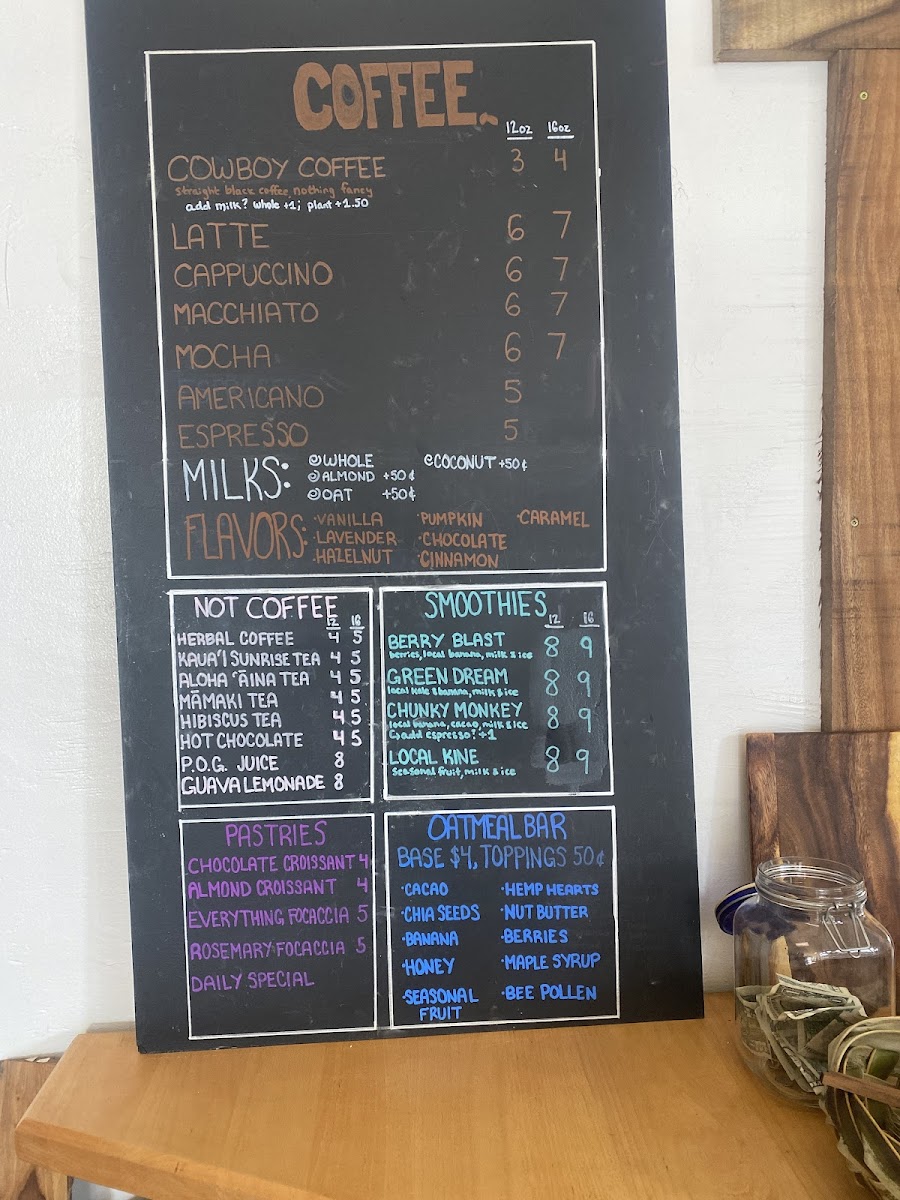 COFFEE
12oz 16oz
COWBOY COFFEE 3 4
straight black coffee, nothing fancy
add milk? whole +1; plant +1.50
LATTE 6 7
CAPPUCCINO 6 7
MACCHIATO 6 7
MOCHA 6 7
AMERICANO 5
ESPRESSO 5
MILKS:
WHOLE COCONUT +50¢
ALMOND +50¢
OAT +50¢
FLAVORS:
·VANILLA ·PUMPKIN ·CARAMEL
·LAVENDER ·CHOCOLATE
·HAZELNUT ·CINNAMON
NOT COFFEE
12 16
HERBAL COFFEE 4 5
KAUA'I SUNRISE TEA 4 5
ALOHA 'ĀINA TEA 4 5
MĀMAKI TEA 4 5
HIBISCUS TEA 4 5
HOT CHOCOLATE 4 5
P.O.G. JUICE 8
GUAVA LEMONADE 8
SMOOTHIES
12 16
BERRY BLAST 8 9
berries, local banana, milk & ice
GREEN DREAM 8 9
local kale & banana, milk & ice
CHUNKY MONKEY 8 9
local banana, cacao, milk & ice
add espresso? +1
LOCAL KINE 8 9
seasonal fruit, milk & ice
PASTRIES
CHOCOLATE CROISSANT 4
ALMOND CROISSANT 4
EVERYTHING FOCACCIA 5
ROSEMARY FOCACCIA 5
DAILY SPECIAL
OATMEAL BAR
BASE $4, TOPPINGS 50¢
·CACAO ·HEMP HEARTS
·CHIA SEEDS ·NUT BUTTER
·BANANA ·BERRIES
·HONEY ·MAPLE SYRUP
·SEASONAL FRUIT ·BEE POLLEN